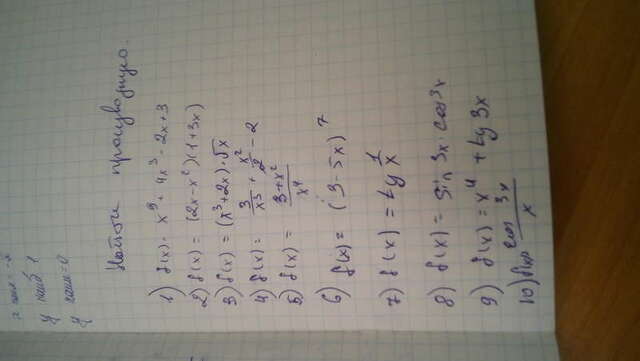 y наиб 1
y наим=0
Найти производную.
1) f(x) = x⁹ + 4x³ - 2x + 3
2) f(x) = (2x-x²)(1+3x)
3) f(x) = (x³+2x)·√x
4) f(x) = 3/x³ + x²/2 - 2
5) f(x) = (3+x²)/x⁴
6) f(x) = (3-5x)⁷
7) f(x) = tg 1/x
8) f(x) = sin 3x · cos 3x
9) f(x) = x⁴ + tg 3x
10) f(x) = cos 3x / x